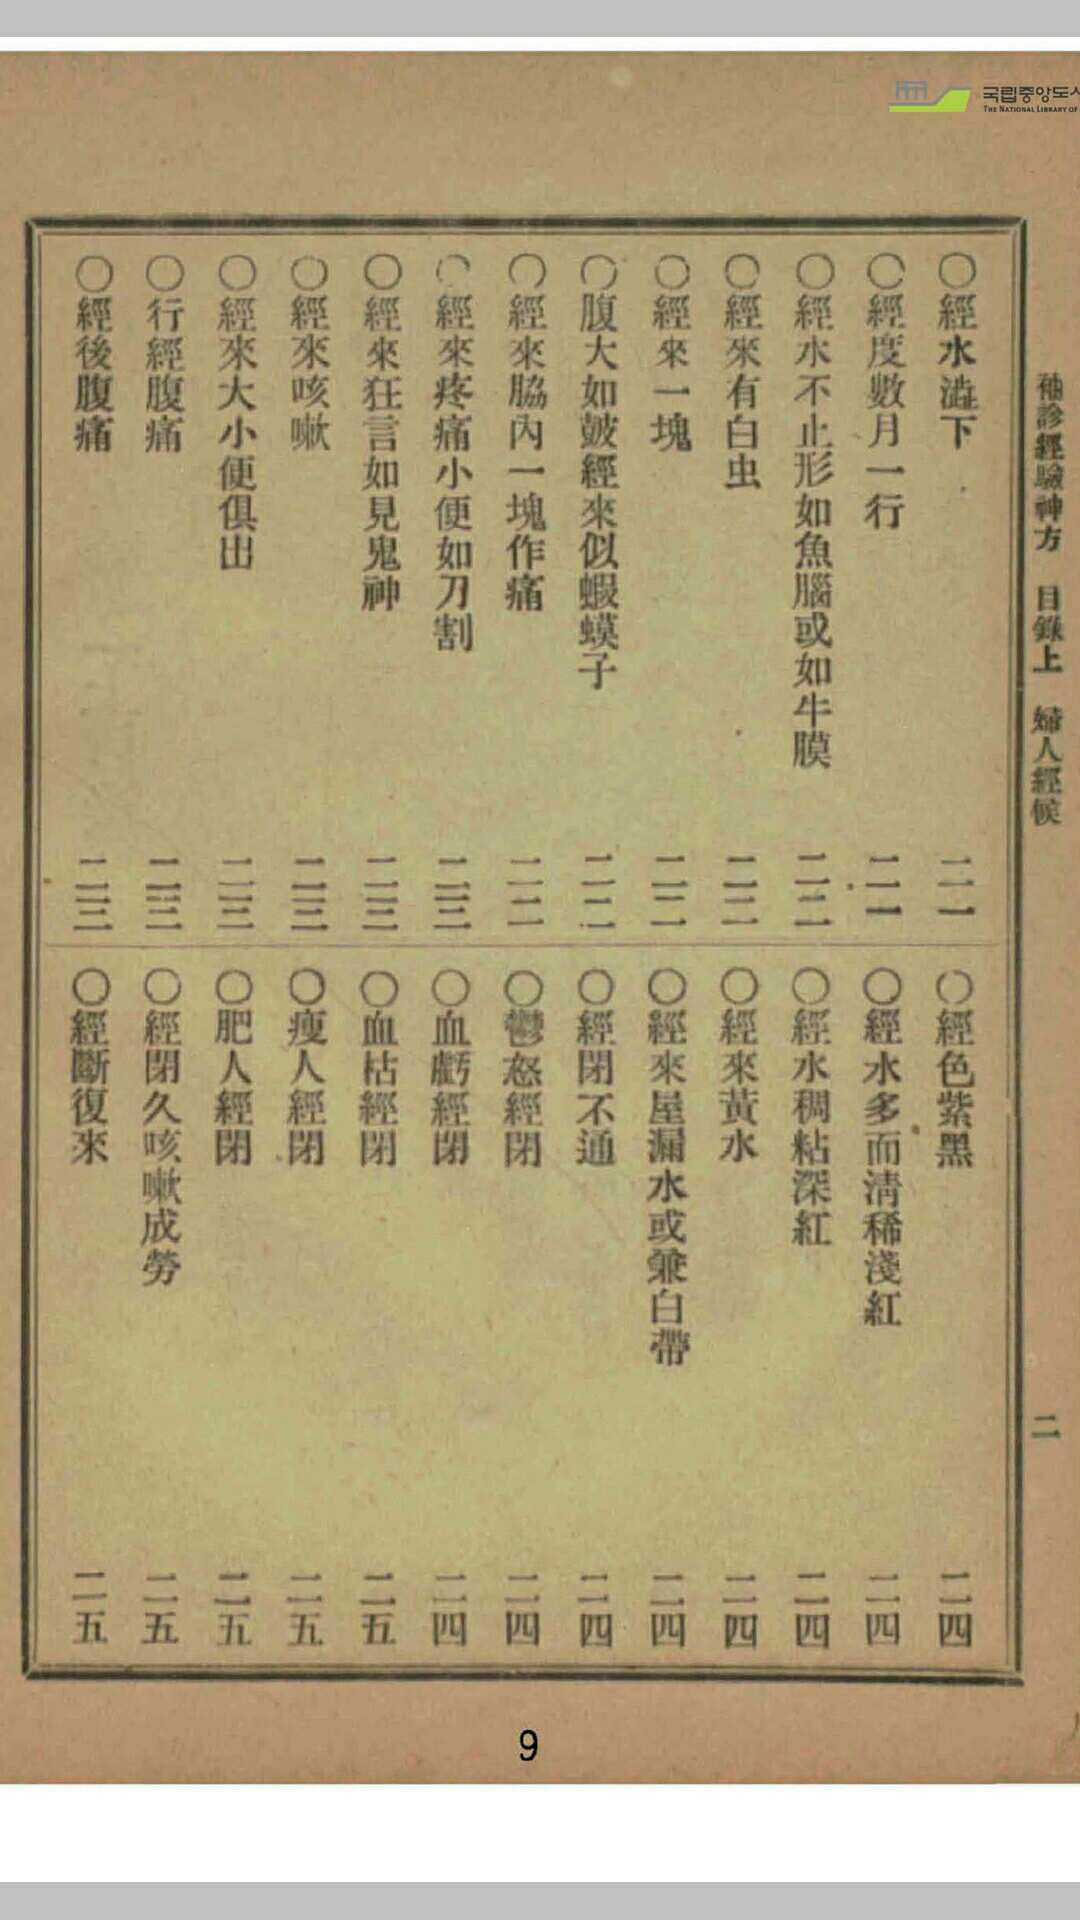 국립중앙도서
THE NATIONAL LIBRARY OF
袖診經驗神方 目錄上 婦人經候 二
○經水澁下 二一
○經度數月一行 二一
○經水不止形如魚腦或如牛膜 二二
○經來有白虫 二二
○經來一塊 二二
○腹大如皷經來似蝦蟆子 二二
○經來脇內一塊作痛 二二
○經來疼痛小便如刀割 二三
○經來狂言如見鬼神 二三
○經來咳嗽 二三
○經來大小便俱出 二三
○行經腹痛 二三
○經後腹痛 二三
○經色紫黑 二四
○經水多而淸稀淺紅 二四
○經水稠粘深紅 二四
○經來黃水 二四
○經來屋漏水或兼白帶 二四
○經閉不通 二四
○鬱怒經閉 二四
○血虧經閉 二四
○血枯經閉 二五
○瘦人經閉 二五
○肥人經閉 二五
○經閉久咳嗽成勞 二五
○經斷復來 二五
9